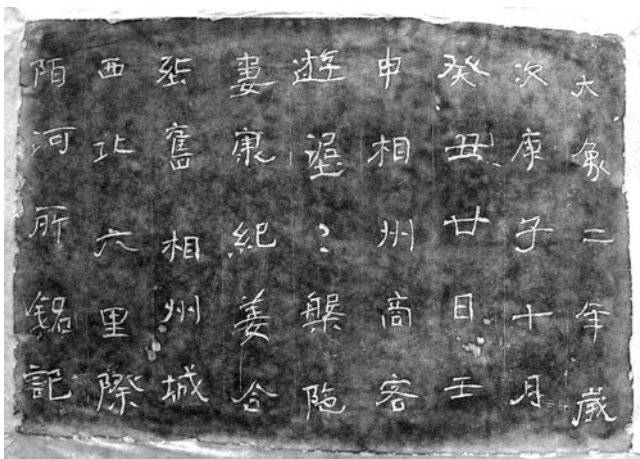 大象二年歲
次庚子十月
癸丑廿日壬
申相州商客
遊埿〻槃陁
妻康紀姜合
塟舊相州城
西北六里際
陌河所銘記